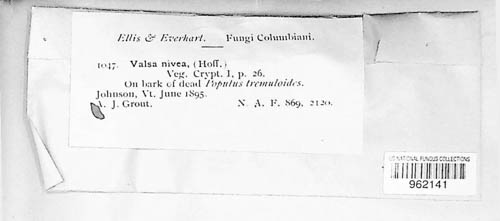 Ellis & Everhart. Fungi Columbiani.
1047. Valsa nivea, (Hoff.)
Veg. Crypt. I, p. 26.
On bark of dead Populus tremuloides.
Johnson, Vt. June 1895.
A. J. Grout. N. A. F. 869, 2120.
US NATIONAL FUNGUS COLLECTIONS
962141